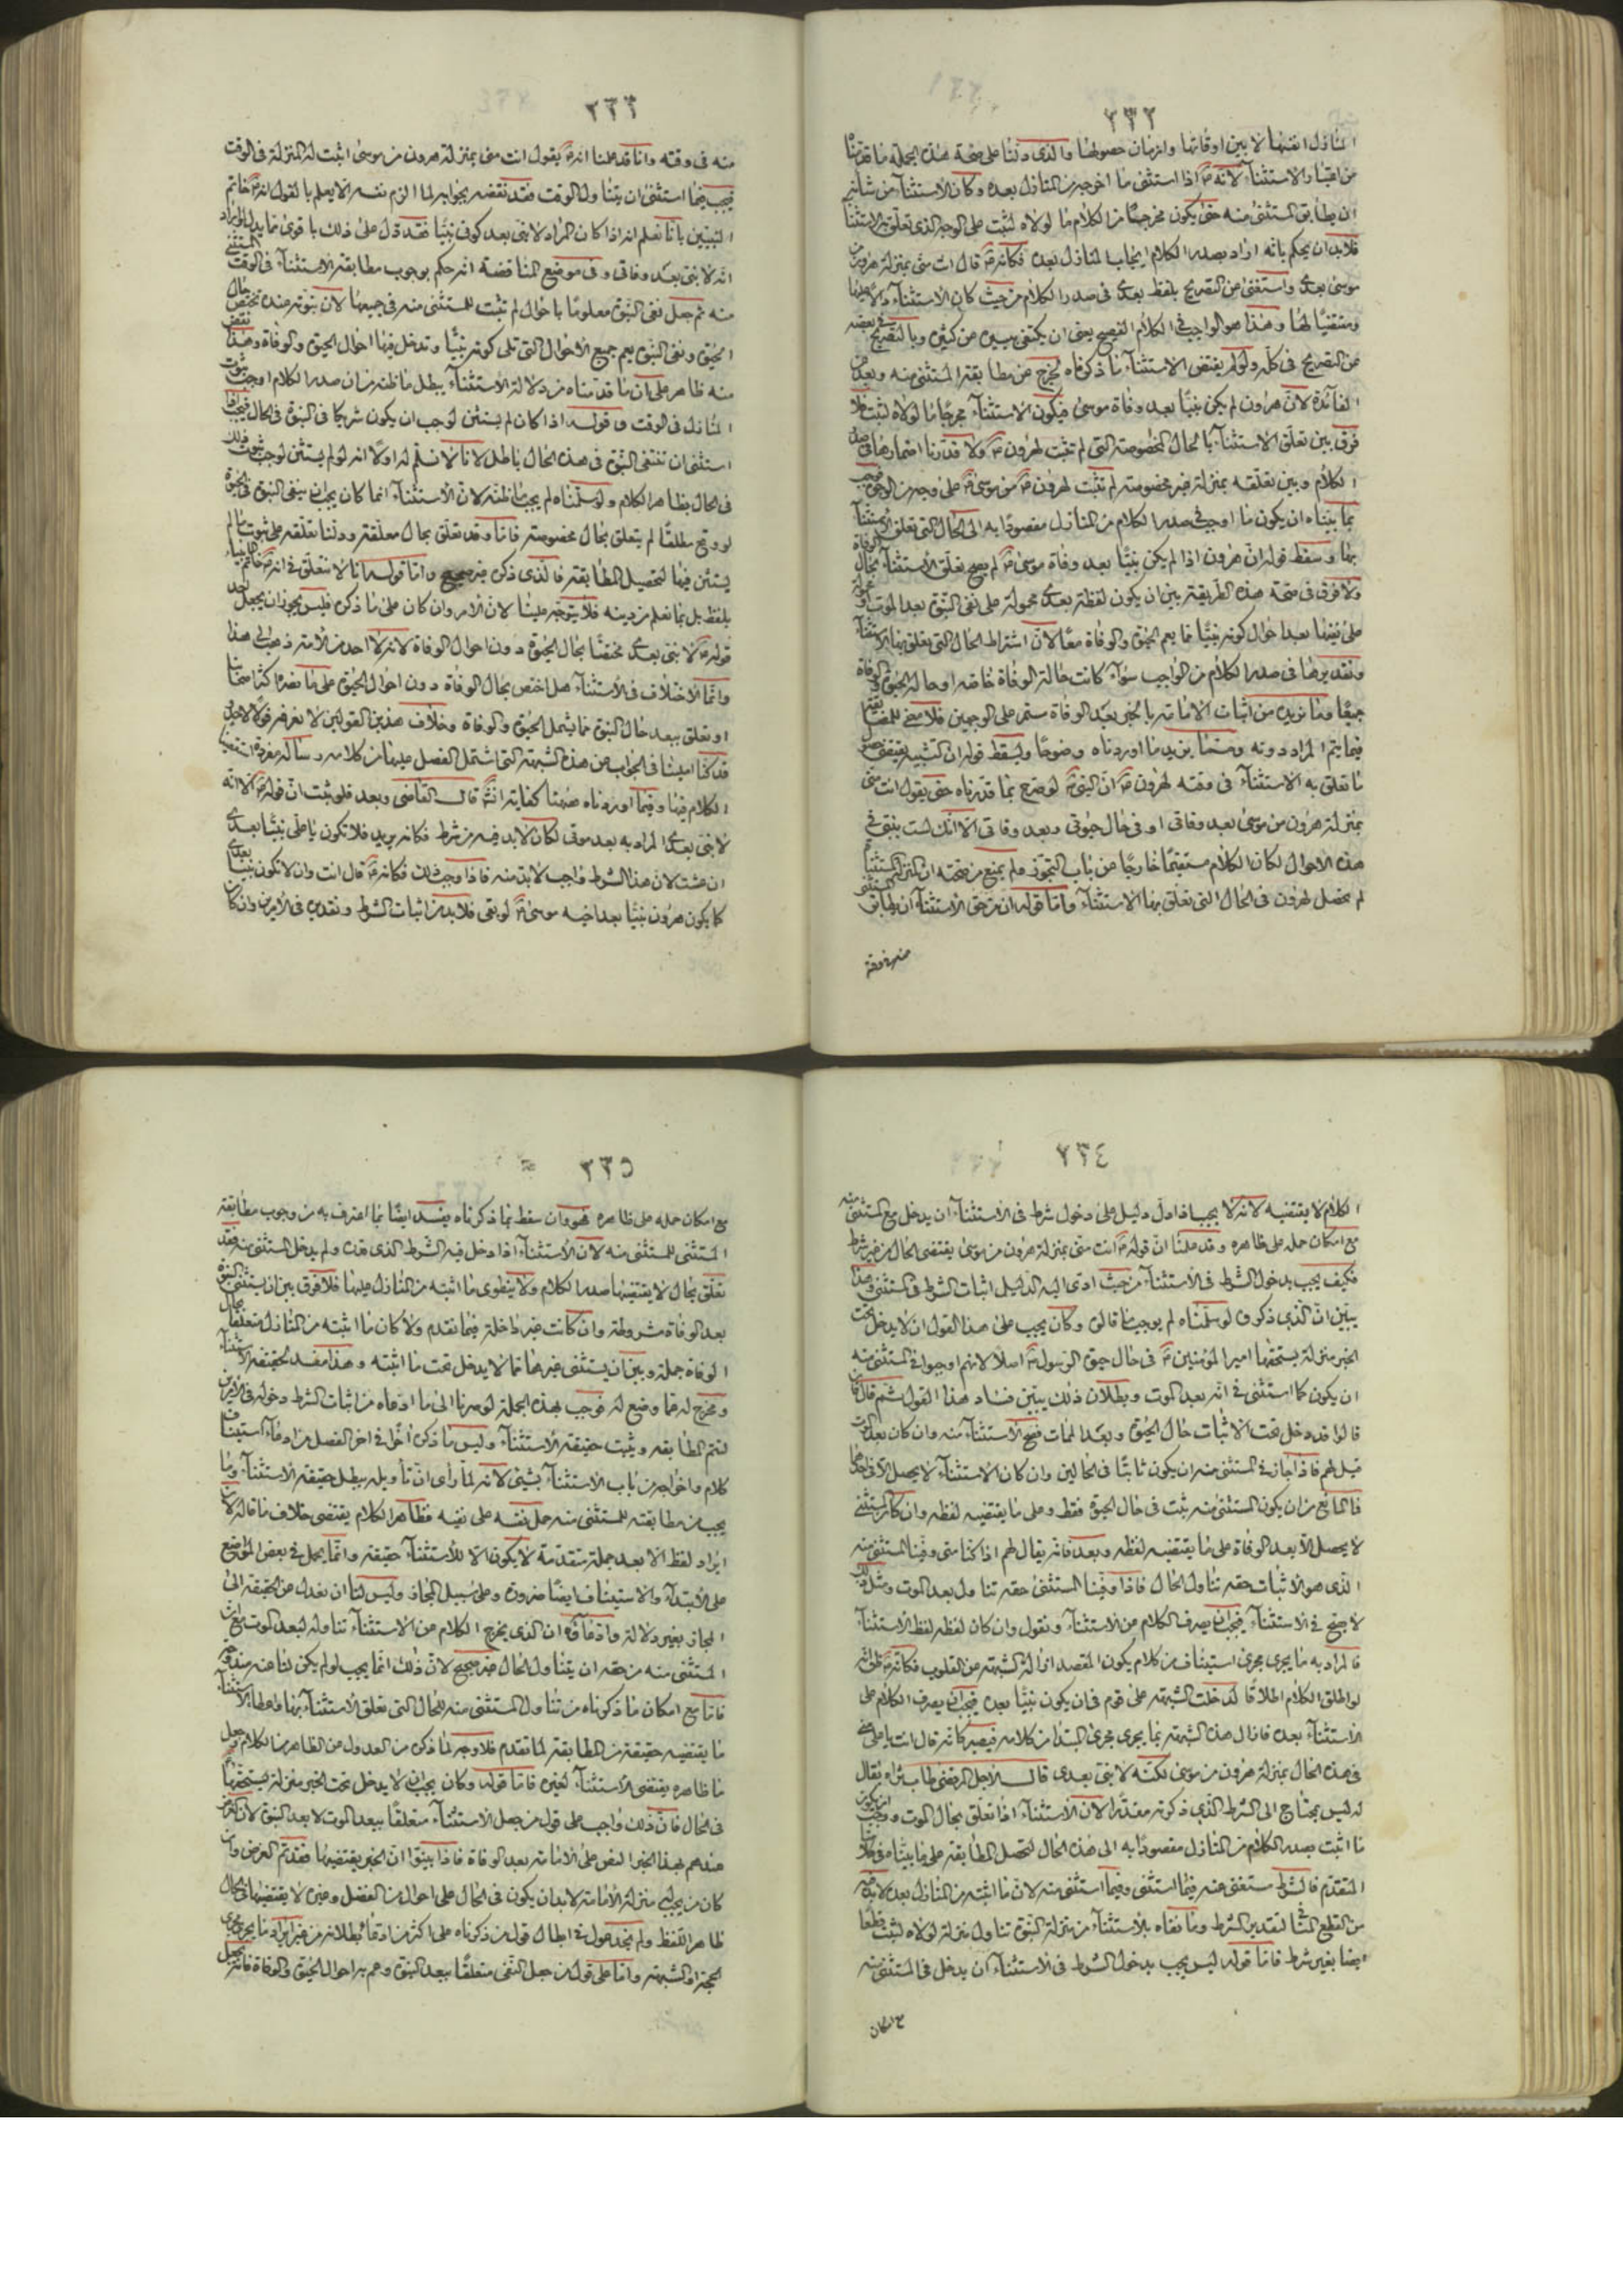 ٢٣٢
المنازل اعتبها لا بين اوقاتها وازمان حصولها والذى دلنا على صحة هذه الجملة ما قدمنا
من اعتبار الاستثنآء لانه اذا استثنى ما اخرجه من المنازل بعده وكان الاستثنآء من شانه
ان يطابق المستثنى منه حتى يكون مخرجا من الكلام ما لولاه لثبت على الوجه الذى تعلق به الاستثنآء
فلابد ان يحكم بانه اراد بصدر الكلام ايجاب المنازل بعده فكانه قال انت منى بمنزلة هرون من
موسى بعدى واستغنى عن التصريح بلفظ بعدى فى صدر الكلام من حيث كان الاستثنآء دالا عليها
ومقتضيا لها وهذا هو الواجب فى الكلام الفصيح يعنى ان يكتفى بيسيره عن كثيره وبالتصريح فى بعضه
عن التصريح فى كله ولو لم يقتض الاستثنآء ما ذكرناه لخرج من مطابقة المستثنى منه وبعد عن
الفائدة لان هرون لم يكن نبيا بعد وفاة موسى فيكون الاستثنآء مخرجا ما لولاه لثبت فلا
فرق بين تعلق الاستثنآء بالحال المخصوصة التى لم تثبت لهرون ولا قدرنا اضمارها فى صدر
الكلام وبين تعلقه بمنزلة غير مخصوصة لم تثبت لهرون من موسى على وجه من الوجوه فيجب
بما بيناه ان يكون ما اوجب فى صدر الكلام من المنازل مقصودا به الى الحال التى تعلق الاستثنآء
بها وسقط قوله ان هرون اذا لم يكن نبيا بعد وفاة موسى لم يصح تعلق الاستثنآء بحال الوفاة
ولا فرق فى صحة هذه الطريقة بين ان يكون لفظة بعدى محمولة على نفى النبوة بعد الموت او
على نفيها بعد احوال كونه نبيا مما يعم الحيوة والوفاة معا لان اشتراط الحال التى تعلق بها الاستثنآء
وتقديرها فى صدر الكلام من الواجب سوآء كانت حالة الوفاة خاصة او حالة الحيوة والوفاة
جميعا وما نريده من اثبات الامامة بالخبر بعد الوفاة ستمر على الوجهين فلا معنى للمضايقة
فيما يتم المراد دونه ومما يزيد ما اوردناه وضوحا ويسقط قوله ان التشبيه يقتضى حصول
ما تعلق به الاستثنآء فى وقته لهرون ان النبى لو صرح بما قدرناه حتى يقول انت منى
بمنزلة هرون من موسى بعد وفاتى او فى حال حيوتى وبعد وفاتى الا انك لست بنبى فى
هذه الاحوال لكان الكلام مستقيما خارجا من باب التجوز ولم يمنع من صحته ان المنزلة المستثناة
لم تحصل لهرون فى الحال التى تعلق بها الاستثنآء واما قوله ان من حق الاستثنآء ان يطابق المستثنى
منه فى وقته
٢٣٣
منه فى وقته وانا قد علمنا انه يقول انت منى بمنزلة هرون من موسى اثبت له المنزلة فى الوقت
فيجب فيما استثنى ان يتناول الوقت فقد نقضه بجوابه لما الزم نفسه الا يعلم بالقول انه خاتم
النبيين بانا نعلم انه اذا كان المراد لا نبى بعد كونى نبيا فقد دل على ذلك باقوى مما يدل لو اراد
انه لا نبى بعد وفاتى وفى موضع المناقضة انه حكم بوجوب مطابقة الاستثنآء فى الوقت المستثنى
منه ثم جعل نفى النبوة معلوما باحوال لم تثبت للمستثنى منه فى جميعها لان نبوته عنده تختص حال
الحيوة ونفى النبوة يعم جميع الاحوال التى تلى كونه نبيا وتدخل فيها احوال الحيوة والوفاة وهذا نقض
منه ظاهر على ان ما قدمناه من دلالة الاستثنآء يبطل ما ظنه من ان صدر الكلام اوجب ثبوت
المنازل فى الوقت و قوله اذا كان لم يستثن لوجب ان يكون شريكا فى النبوة فى الحال فيجب اذا
استثنى ان تنتفى النبوة فى هذه الحال باطل لانا لا نسلم له اولا انه لو لم يستثن لوجب ثبوت ذلك
فى الحال بظاهر الكلام ولو سلمناه لم يجب ما ظنه لان الاستثنآء انما كان يجب ان ينفى النبوة فى الحيوة
لو وقع مطلقا لم يتعلق بحال مخصوصة فاما وقد تعلق بحال معلقة ودلنا تعلقه على ثبوت ما لم
يستثن فيها لتحصيل المطابقة فالذى ذكره غير صحيح واما قوله انا لا نتعلق فى انه خاتم الانبياء
بلفظ بل بما نعلم من دينه فلا يتوجه علينا لان الامر وان كان على ما ذكره فليس يجوز ان يجعل احد
قوله لا نبى بعدى مختصا بحال الحيوة دون احوال الوفاة لانه لا احد من الامة ذهب الى هذا
وانما الاختلاف فى الاستثنآء هل اختص بحال الوفاة دون احوال الحيوة على ما نصره كثر اصحابنا
او تعلق ببعد حال النبوة مما يشمل الحيوة والوفاة وخلاف هذين القولين لا نعرفه قولا لاحد
قد كنا املينا فى الجواب عن هذه الشبهة التى اشتمل الفصل عليها من كلامه رسالة مفردة استقصينا
الكلام فيها وفيما اوردناه هيهنا كفاية انشآء قال القاضى وبعد فلو ثبت ان قوله الا انه
لا نبى بعدى المراد به بعد موتى لكان لابد فيه من شرط فكانه يريد فلا تكون يا على نبيا بعدى
ان عشت لان هذا الشرط واجب لابد منه فاذا وجب ذلك فكانه قال انت وان لا تكون نبيا بعدى
كما يكون هرون نبيا بعد اخيه موسى لو بقى فلابد من اثبات الشرط وتقديره فى الامرين وان كان
٢٣٤
الكلام لا يقتضيه لانه لا يجب اذا دل دليل على دخول شرط فى الاستثنآء ان يدخل مع المستثنى منه
مع امكان حمله على ظاهره وقد علمنا ان قوله انت منى بمنزلة هرون من موسى يقتضى الحال من غير شرط
فكيف يجب بدخول الشرط فى الاستثنآء من حيث ادى اليه الدليل اثبات الشرط فى المستثنى وهذا
يبين ان الذى ذكروه لو سلمناه لم يوجب ما قالوه وكان يجب على هذا القول ان لا يدخل تحت
الخبر منزلة يستحقها امير المؤمنين فى حال حيوة الرسول اصلا لانهم اوجبوا فى المستثنى منه
ان يكون كما استثنى فى انه بعد الموت وبطلان ذلك يبين فساد هذا القول ثم قال فان
قالوا قد دخل تحت الاثبات حال الحيوة وبعد الممات فصح الاستثنآء منه وان كان بعد الموت
قيل لهم فاذا جاز فى المستثنى منه ان يكون ثابتا فى الحالين وان كان الاستثنآء لا يحصل الا فى احدهما
فما المانع من ان يكون المستثنى منه يثبت فى حال الحيوة فقط وعلى ما يقتضيه لفظه وان كان المستثنى
لا يحصل الا بعد الوفاة على ما يقتضيه لفظه وبعد فانه يقال لهم اذا كنا متى وفينا المستثنى منه
الذى هو الاثبات حقه تناول الحال فاذا وفينا المستثنى حقه تناول بعد الموت ومثل ذلك
لا يصح فى الاستثنآء فيجب ان يصرف الكلام عن الاستثنآء ونقول وان كان لفظه لفظ الاستثنآء
فالمراد به ما يجرى مجرى استيناف من كلام يكون المقصد ازالة الشبهة عن القلوب فكانه ظن انه
لو اطلق الكلام اطلاقا لدخلت الشبهة على قوم فى ان يكون نبيا بعده فيجب ان يصرف الكلام على
الاستثنآء بعده فازال هذه الشبهة بما يجرى مجرى المبتدا من كلامه فيصير كانه قال انت يا على منى
فى هذه الحال بمنزلة هرون من موسى لكنه لا نبى بعدى قال الاجل المرتضى طاب ثراه يقال
له ليس يحتاج الى الشرط الذى ذكرته مقدرا لان الاستثنآء اذا تعلق بحال الموت ووجب ان يكون
ما اثبت بصدر الكلام من المنازل مقصودا به الى هذه الحال لتحصل المطابقة على ما بيناه فى كلامنا
المتقدم فالشرط مستغنى عنه فيما استثنى وفيما استثنى منه لان ما اثبته من المنازل بعده لابد فيه
من القطع لتقدير الشرط وما نفاه بالاستثنآء من منزلة النبوة تناول منزلة لولاه لثبت قطعا
ايضا بغير شرط فاما قوله ليس يجب بدخول الشرط فى الاستثنآء ان يدخل فى المستثنى منه
مع امكان
٢٣٥
مع امكان حمله على ظاهره فهو وان سقط بما ذكرناه يفسد ايضا بما اعترف به من وجوب مطابقة
المستثنى للمستثنى منه لان الاستثنآء اذا دخل فيه الشرط الذى قدره ولم يدخل المستثنى منه فقد
تعلق بحال لا يقتضيها صدر الكلام ولا ينطوى ما اثبته من المنازل عليها فلا فرق بين ان يستثنى النبوة
بعد الوفاة مشروطة وان كانت غير داخلة فيما تقدم ولا كان ما اثبته من المنازل متعلقا بحال
الوفاة جملة وبين ان يستثنى غيرها مما لا يدخل تحت ما اثبته وهذا مفسد لحقيقة الاستثنآء
ومخرج له عما وضع له فوجب بهذه الجملة لو صرنا الى ما ادعاه من اثبات الشرط دخوله فى الامرين
لتتم المطابقة ويثبت حقيقة الاستثنآء وليس ما ذكره اخرا فى اخر الفصل من ادعآء استيناف
كلام واخراجه من باب الاستثنآء بشئ لانه لما رأى ان تأويله يبطل حقيقة الاستثنآء وما
يجب من مطابقته للمستثنى منه حمل نفسه على نفيه فظاهر الكلام يقتضى خلاف ما قاله لان
ايراد لفظ الا بعد جملة متقدمة لا يكون الا للاستثنآء حقيقة وانما يحمل فى بعض المواضع
على الابتدآء والاستيناف ايضا ضرورة وعلى سبيل المجاز وليس لنا ان نعدل عن الحقيقة الى
المجاز بغير دلالة وادعاؤه ان الذى يخرج الكلام من الاستثنآء تناوله لبعد الموت مع ان
المستثنى منه من حقه ان يتناول الحال غير صحيح لان ذلك انما يجب لو لم يكن لنا عنه مندوحة
فاما مع امكان ما ذكرناه من تناول المستثنى منه للحال التى تعلق الاستثنآء بها واعطاء الاستثنآء
ما يقتضيه حقيقة من المطابقة لما تقدم فلا وجه لما ذكره من العدول عن الظاهر من الكلام وحمل
ما ظاهره يقتضى الاستثنآء لغيره فاما قوله وكان يجب ان لا يدخل تحت الخبر منزلة يستحقها
فى الحال فان ذلك واجب على قول من جعل الاستثنآء متعلقا ببعد الموت لا بعد النبوة لان الغرض
عندهم بهذا الخبر النص على الامامة بعد الوفاة فاذا بينوا ان الخبر يقتضيها فقد تم الغرض وان
كان من يجب له منزلة الامامة لابد ان يكون فى الحال على احوال من الفضل وغيره لا يقتضيها فى الحال
ظاهر اللفظ ولم نجده عول فى ابطال قول من ذكرناه على اكثر من ادعآء بطلانه من غير ايراد ما يجرى مجرى
الحجة او الشبهة واما على قول من جعل النفى متعلقا ببعد النبوة وعم به احوال الحيوة والوفاة فانه يجعل